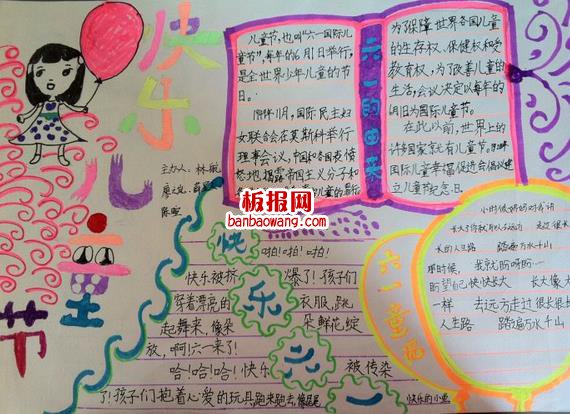 快乐儿童节
主办人：林
陈
儿童节，也叫“六一国际儿
童节”，每年的6月1日举行，
是全世界少年儿童的节
日。
1949年11月，国际民主妇
女联合会在莫斯科举行
理事会议，中国和各国表愤
怒地揭露帝国主义分子和
六一的由来
为保障世界各国儿童
的生存权、保健权和受
教育权，为了改善儿童的
生活，会议决定以每年的
6月1日为国际儿童节。
在此以前，世界上的
许多国家京尤有儿童节。
国际儿童幸福促进会倡议建
立儿童节纪念日。
板报网
banbaowang.com
快乐六一
啪！啪！啪！
快乐被挤爆了！孩子们
穿着漂亮的衣服，跳
起舞来，像朵朵鲜花，绽
放，啊！六一来了！
哈！哈！哈！快乐被传染
了！孩子们抱着心爱的玩具跑来跑去像
六一童谣
小时候妈妈对我讲
长的人生路 踏遍万水千山
那时候， 我就盼呀盼
盼望自己快快长大 长大像大
一样 去远方走过很长很长
人生路 踏遍万水千山
快乐的小鱼